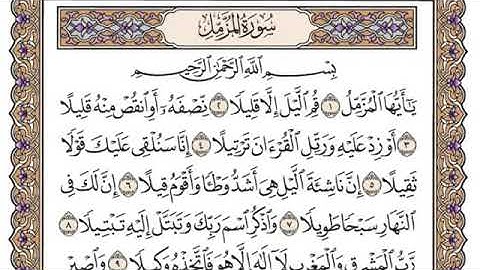 سُورَةُ المُزَّمِّلِ
بِسْمِ اللَّهِ الرَّحْمَٰنِ الرَّحِيمِ
يَا أَيُّهَا الْمُزَّمِّلُ ١ قُمِ اللَّيْلَ إِلَّا قَلِيلًا ٢ نِّصْفَهُ أَوِ انقُصْ مِنْهُ قَلِيلًا
٣ أَوْ زِدْ عَلَيْهِ وَرَتِّلِ الْقُرْءَانَ تَرْتِيلًا ٤ إِنَّا سَنُلْقِي عَلَيْكَ قَوْلًا
ثَقِيلًا ٥ إِنَّ نَاشِئَةَ اللَّيْلِ هِيَ أَشَدُّ وَطْئًا وَأَقْوَمُ قِيلًا ٦ إِنَّ لَكَ فِي
النَّهَارِ سَبْحًا طَوِيلًا ٧ وَاذْكُرِ اسْمَ رَبِّكَ وَتَبَتَّلْ إِلَيْهِ تَبْتِيلًا ٨
رَّبُّ الْمَشْرِقِ وَالْمَغْرِبِ لَا إِلَٰهَ إِلَّا هُوَ فَاتَّخِذْهُ وَكِيلًا ٩ وَاصْبِرْ